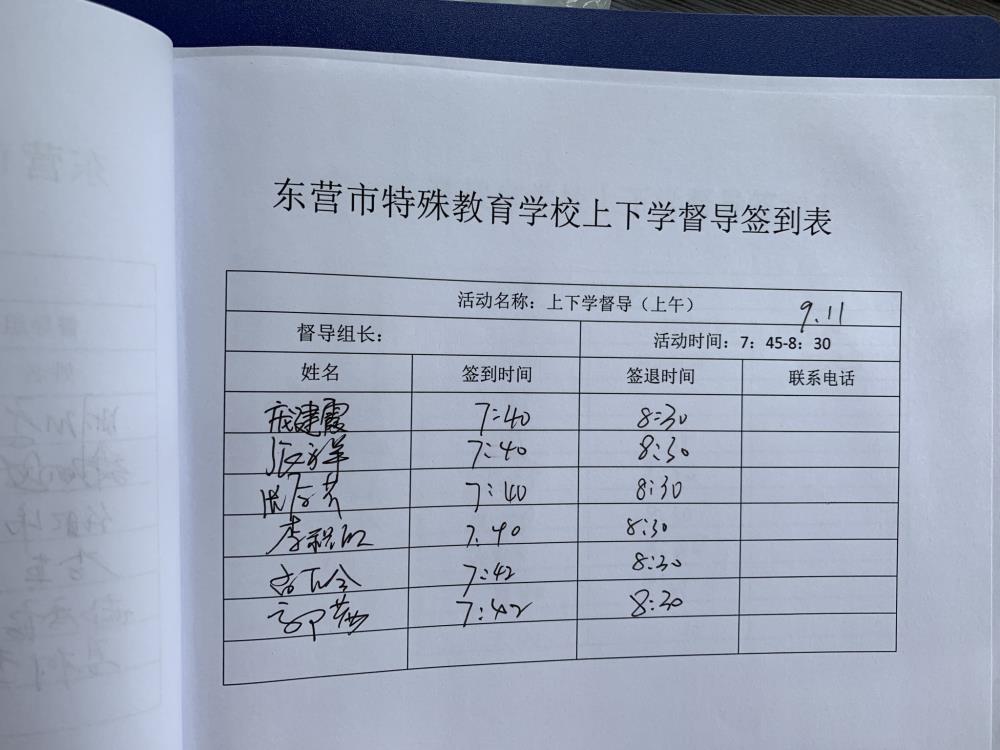 东营市特殊教育学校上下学督导签到表
活动名称：上下学督导（上午） 9.11
督导组长： 活动时间：7：45-8：30
姓名 签到时间 签退时间 联系电话
庞建霞 7:40 8:30
7:40 8:30
7:40 8:30
李 7:40 8:30
7:42 8:30
郭 7:42 8:30